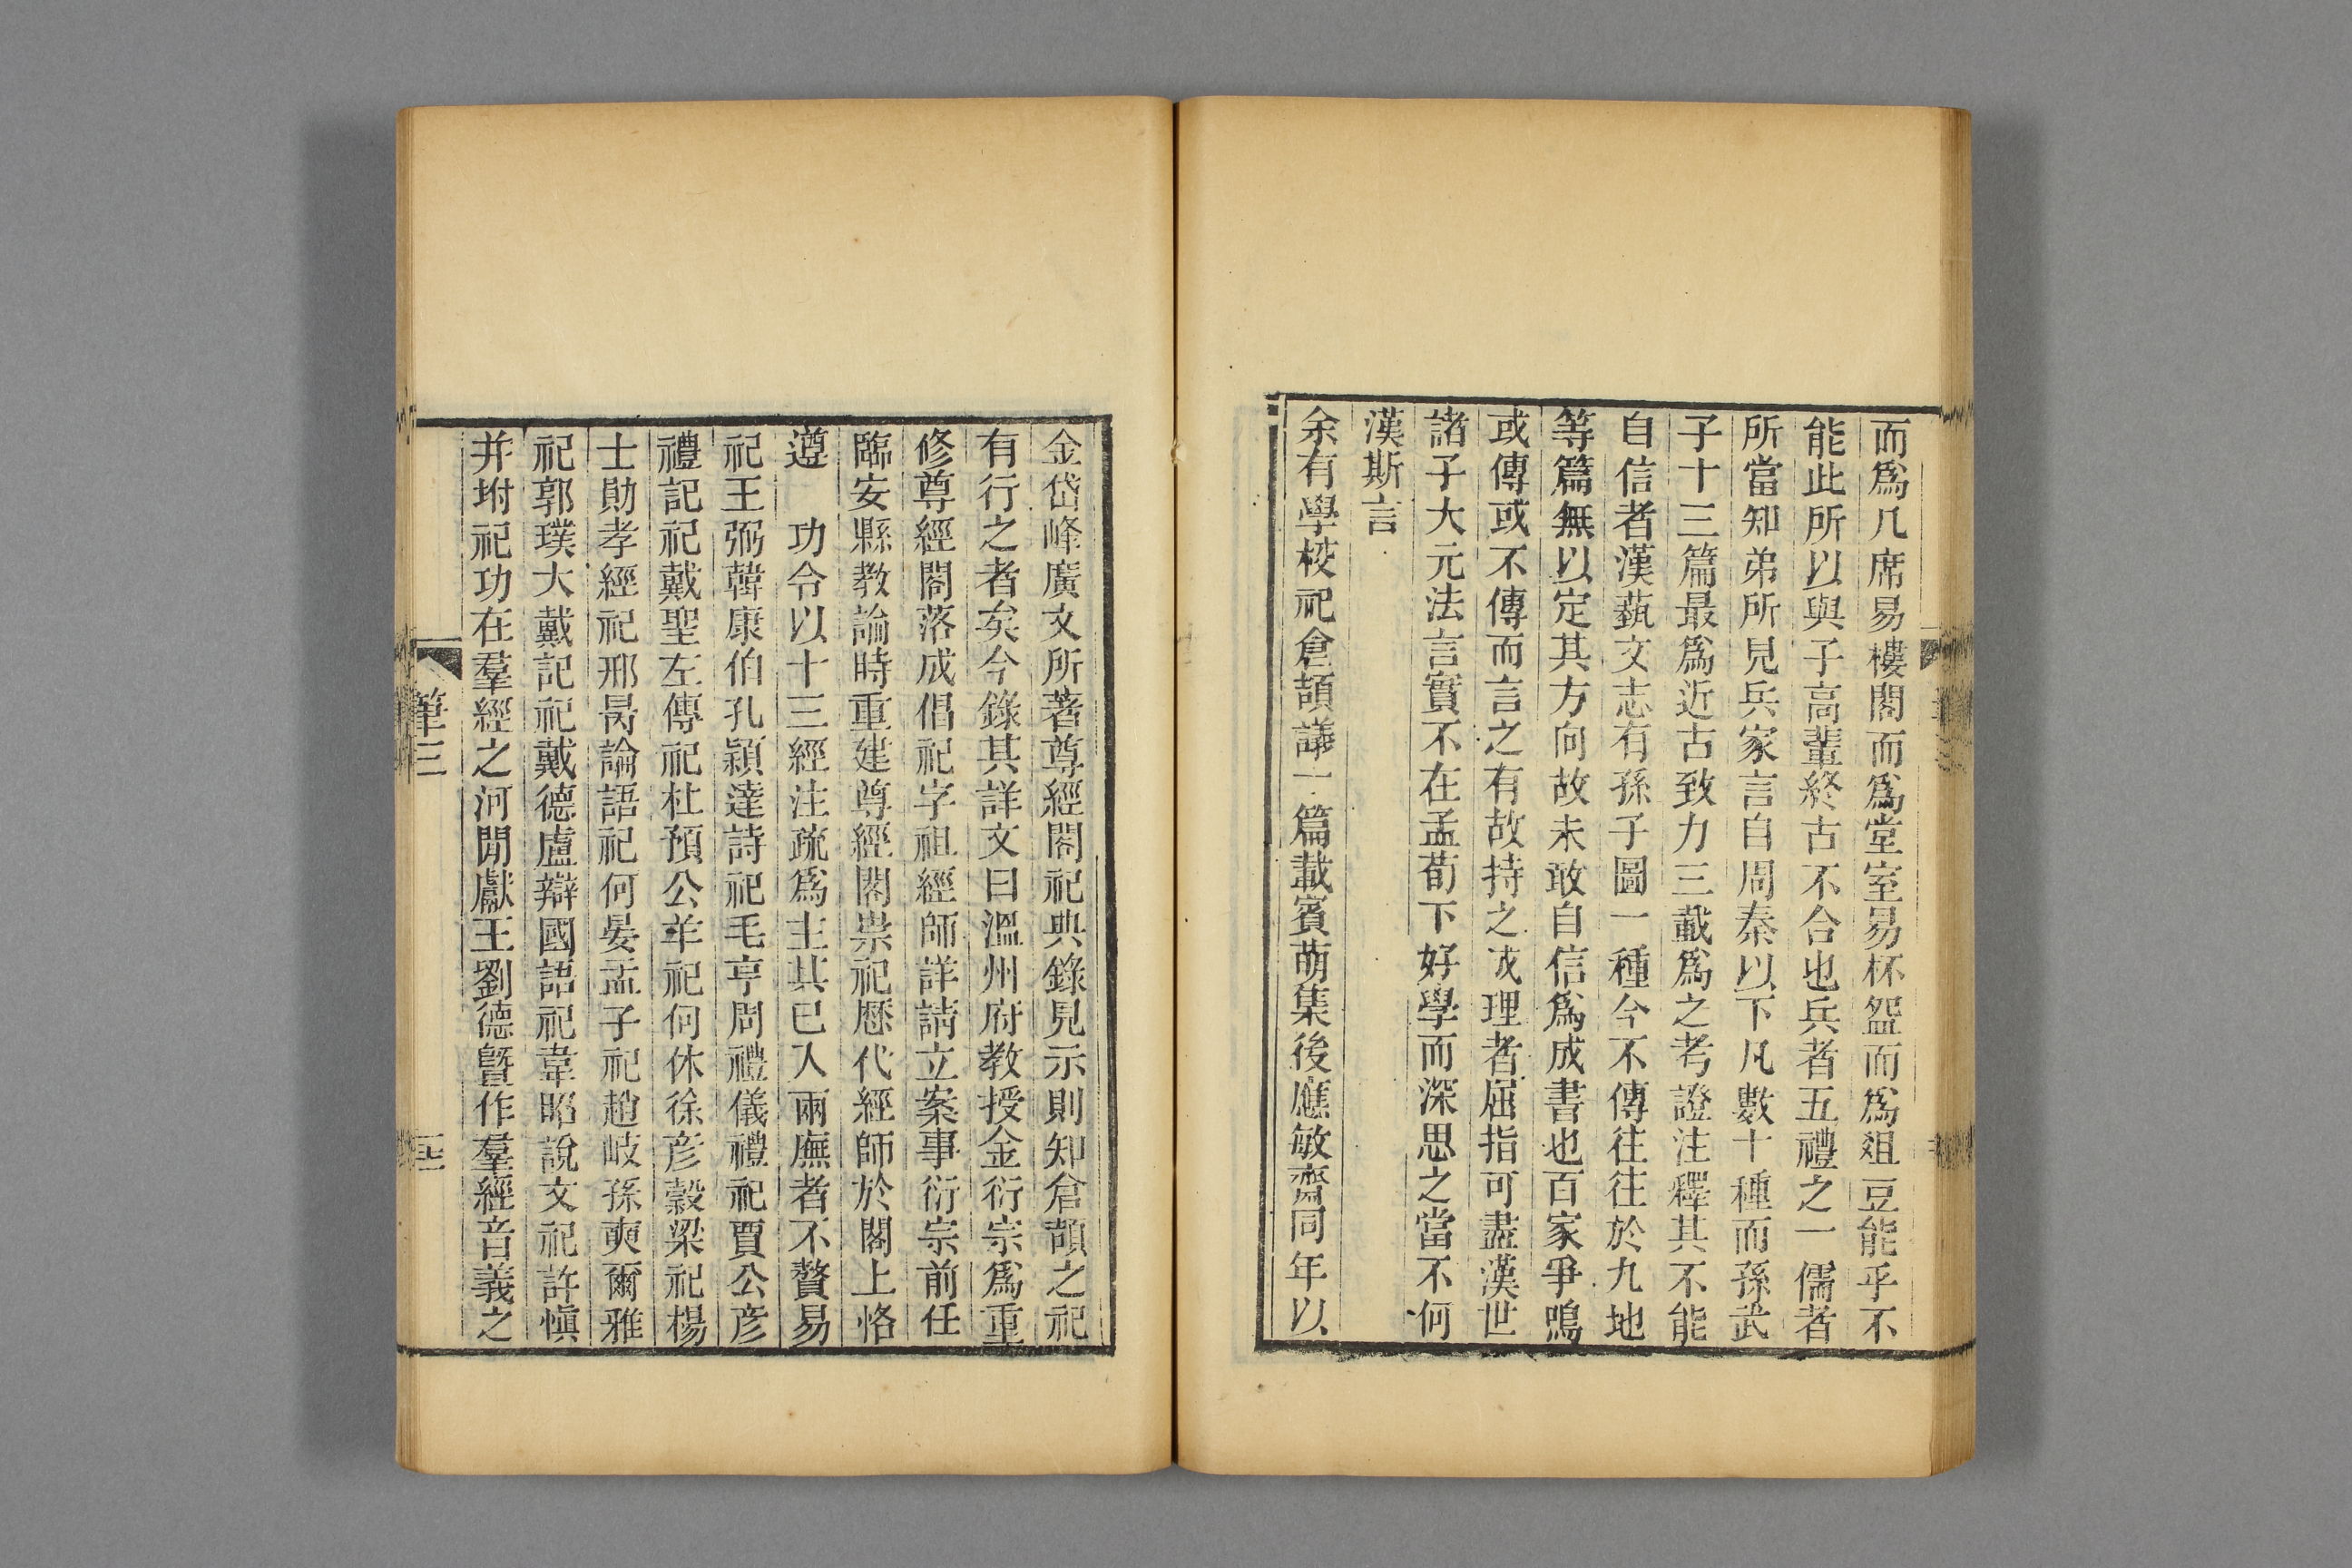 而爲几席易樓閣而爲堂室易杯盌而爲俎豆能乎不
能此所以與子高輩終古不合也兵者五禮之一儒者
所當知弟所見兵家言自周秦以下凡數十種而孫武
子十三篇最爲近古致力三載爲之考證注釋其不能
自信者漢蓺文志有孫子圖一種今不傳往往於九地
等篇無以定其方向故未敢自信爲成書也百家爭鳴
或傳或不傳而言之有故持之成理者屈指可盡漢世
諸子大元法言實不在孟荀下好學而深思之當不何
漢斯言
余有學校祀倉頡議一篇載賓萌集後應敏齋同年以
金岱峰廣文所著尊經閣祀典錄見示則知倉頡之祀
有行之者矣今錄其詳文曰溫州府教授金衍宗爲重
修尊經閣落成倡祀字祖經師詳請立案事衍宗前任
臨安縣教諭時重建尊經閣崇祀歷代經師於閣上恪
遵　功令以十三經注疏爲主其已入兩廡者不贅易
祀王弼韓康伯孔穎達詩祀毛亨周禮儀禮祀賈公彥
禮記祀戴聖左傳祀杜預公羊祀何休徐彥穀梁祀楊
士勛孝經祀邢昺論語祀何晏孟子祀趙岐孫奭爾雅
祀郭璞大戴記祀戴德盧辯國語祀韋昭說文祀許愼
并坿祀功在羣經之河閒獻王劉德曁作羣經音義之
筆三